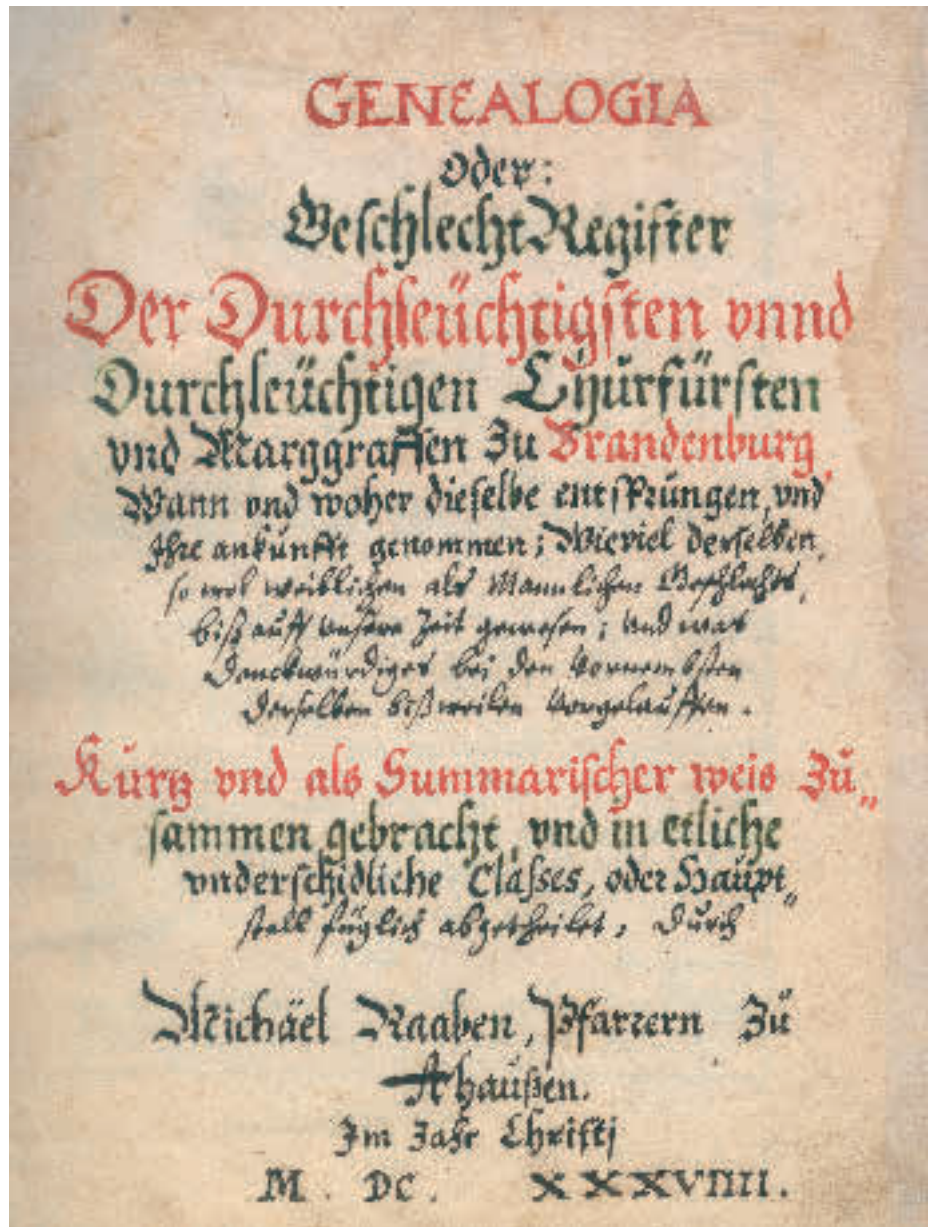 GENEALOGIA
Oder:
Geschlecht Register
Der Durchleüchtigsten vnnd
Durchleüchtigen Churfürsten
vnd Marggraffen Zu Brandenburg,
Wann vnd woher dieselbe entsprungen, vnd
Ihre ankunfft genommen; Wieviel derselben,
so wol weiblichen als Mannlichen Geschlechts,
biß auff vnsere Zeit gewesen; vnd was
Denckwürdiges bei den Vornembsten
derselben bißweilen Vorgelauffen.
Kurtz vnd als Summarischer weis Zu„
sammen gebracht, vnd in etliche
vnderschidliche Classes, oder Haupt„
stell füglich abgetheilet, Durch
Michäel Raaben, Pfarrern Zu
Ahaußen.
Im Jahr Christj
M. DC. XXXVIIII.